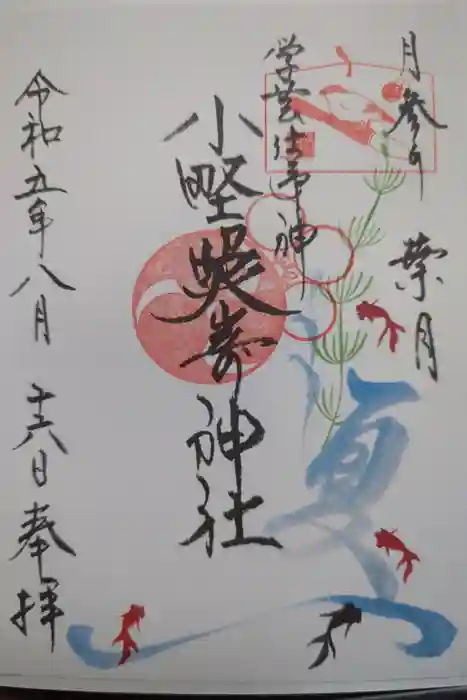 月参り 葉月
小野照崎神社
夏
令和五年八月 十六日 奉拝